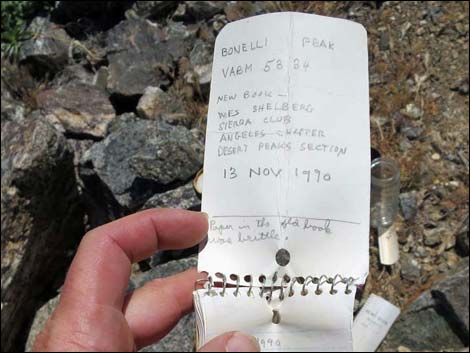 BONELLI PEAK
VABM 5334
NEW BOOK —
WES SHELBERG
SIERRA CLUB
ANGELES CHAPTER
DESERT PEAKS SECTION
13 NOV 1990
Paper in the old book
was brittle.
1990